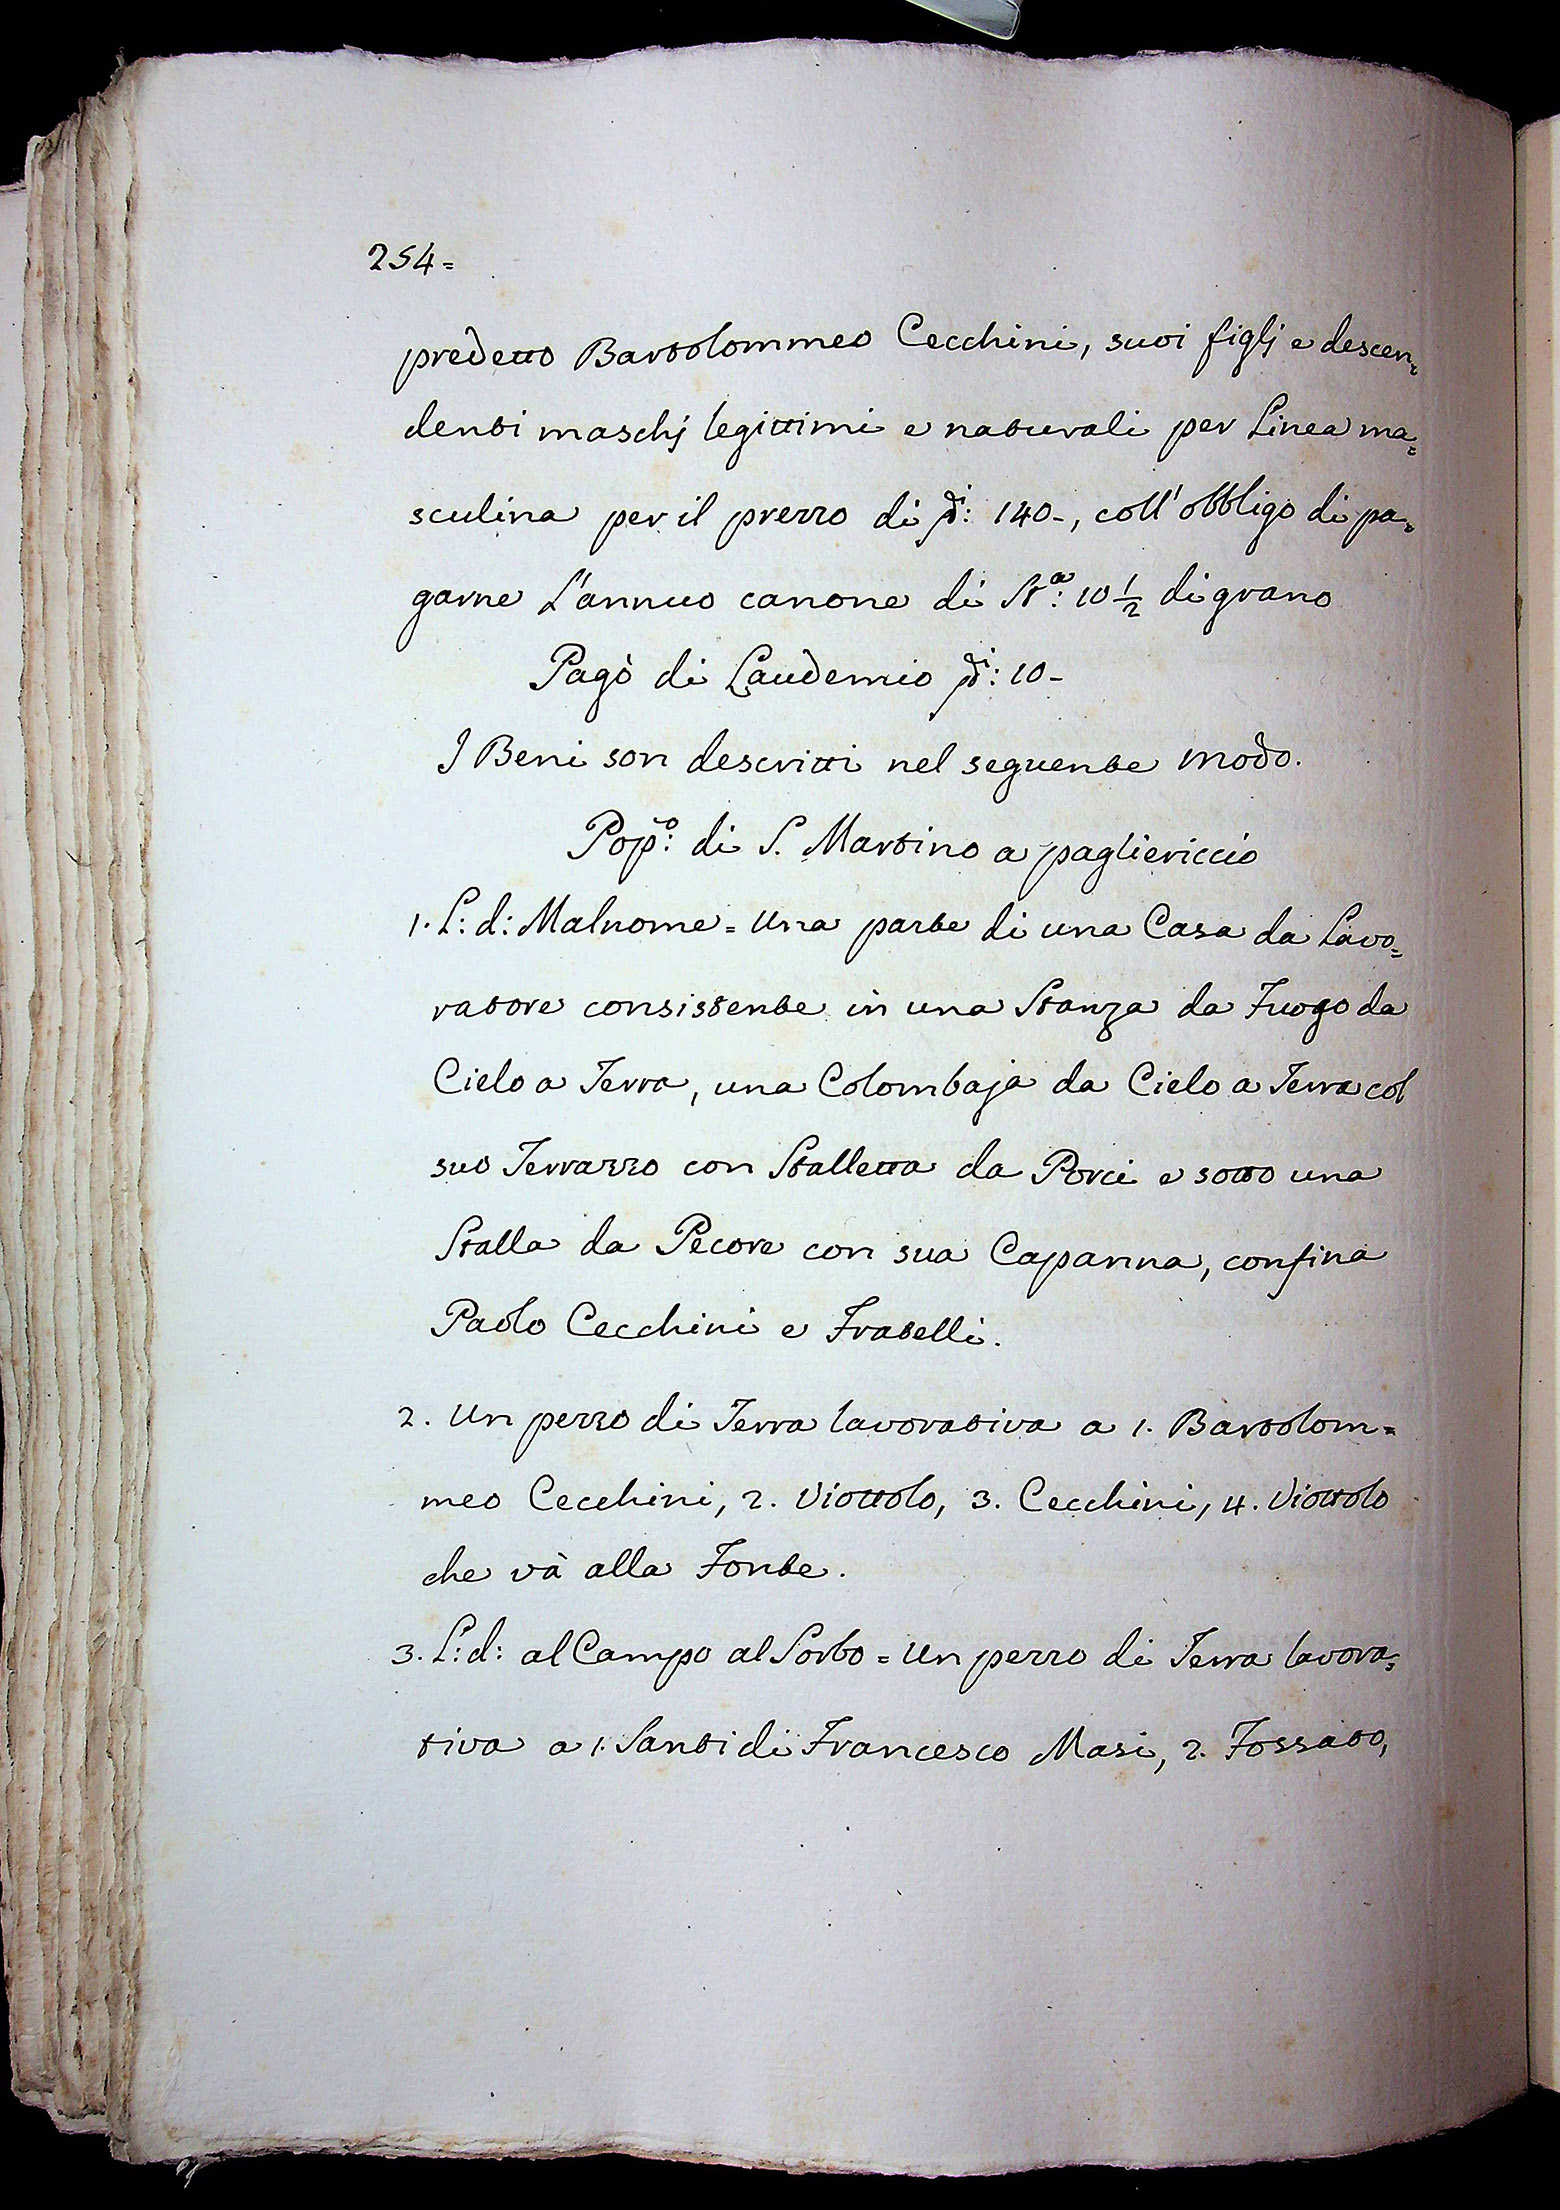 254=
predetto Bartolommeo Cecchini, suoi figlj e descen=
denti maschj legittimi e naturali per Linea ma=
sculina per il prezzo di 140-, coll' obbligo di pa=
garne L'annuo canone di St.ª: 10 ½ di grano
Pagò di Laudemio 10-
I Beni son descritti nel seguente modo.
Pop.º: di S. Martino a pagliericcio
1. L: d: Malnome = Una parte di una Casa da Lavo=
ratore consistente in una Stanza da Fuogo da
Cielo a Terra, una Colombaja da Cielo a Terra col
suo Terrazzo con Stalletta da Porci e sotto una
Stalla da Pecore con sua Capanna, confina
Paolo Cecchini e Fratelli.
2. Un pezzo di Terra lavorativa a 1. Bartolom=
meo Cecchini, 2. Viottolo, 3. Cecchini, 4. Viottolo
che và alla Fonte.
3. L: d: al Campo al Sorbo = Un pezzo di Terra lavora=
tiva a 1. Santi di Francesco Masi, 2. Fossato,